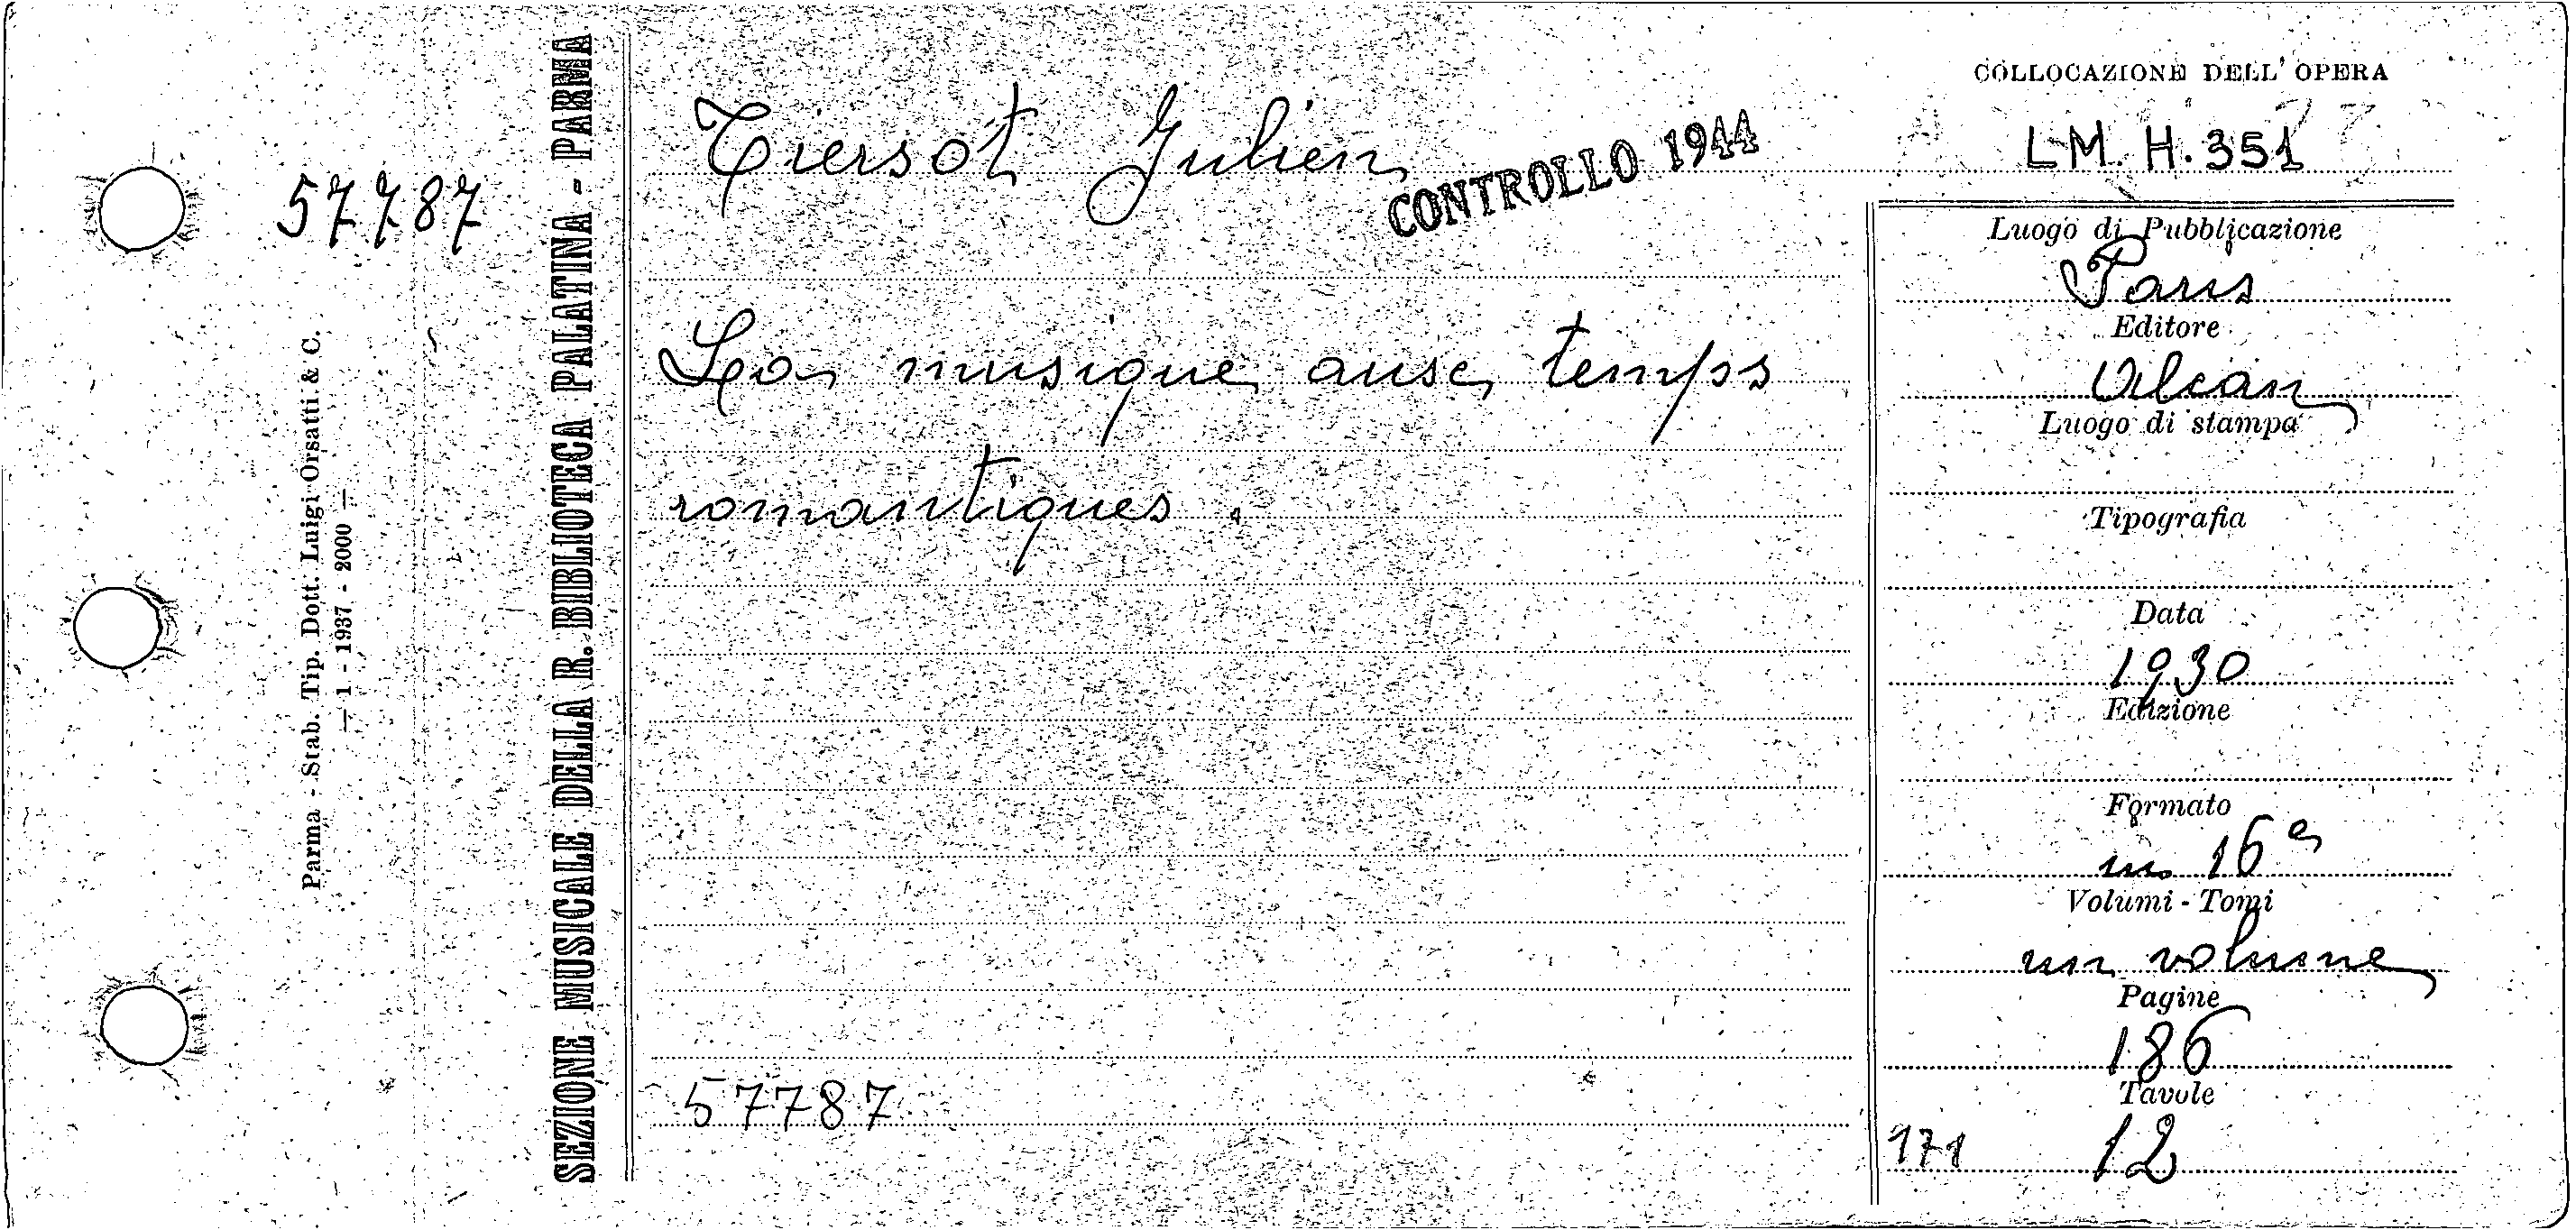 57787
Parma - Stab. Tip. Dott. Luigi Orsatti & C.
— 1 - 1937 - 2000 —
SEZIONE MUSICALE DELLA R. BIBLIOTECA PALATINA - PARMA
Tiersot Julien
CONTROLLO 1944
La musique aux temps
romantiques.
57787
COLLOCAZIONE DELL' OPERA
LM H. 351
Luogo di Pubblicazione
Paris
Editore
Alcan
Luogo di stampa
Tipografia
Data
1930
Edizione
Formato
in 16º
Volumi - Tomi
un volume
Pagine
186
Tavole
171 12